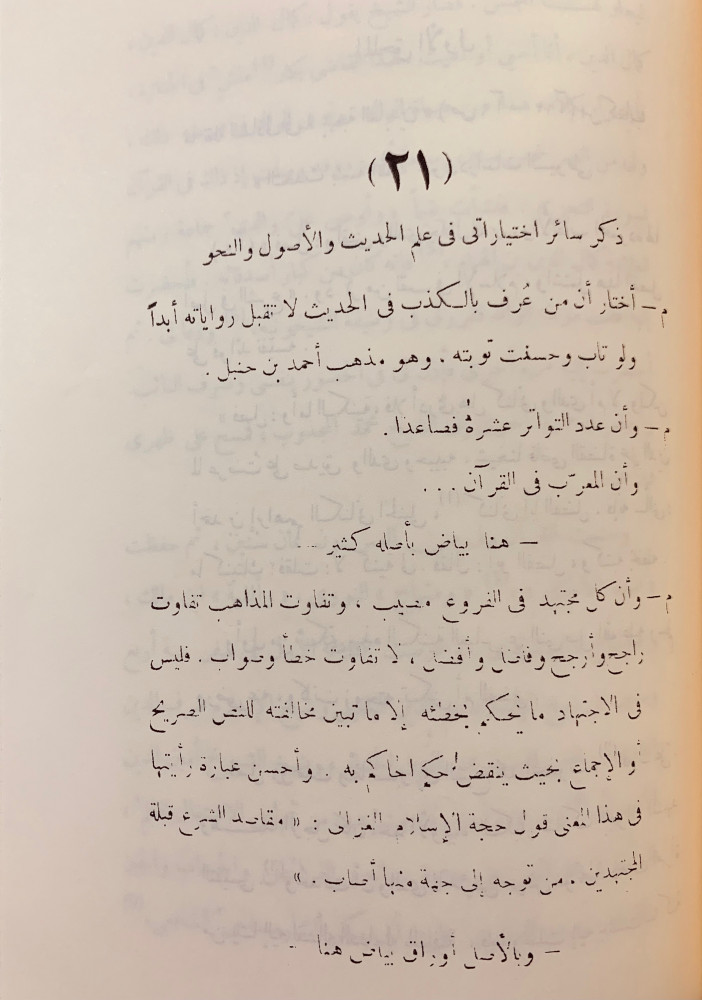 (٢١)
ذكر سائر اختياراتى فى علم الحديث والأصول والنحو
م — أختار أن من عُرف بالكذب فى الحديث لا تقبل رواياته أبداً
ولو تاب وحسنت توبته . وهو مذهب أحمد بن حنبل .
م — وأن عدد التواتر عشرةٌ فصاعدا .
وأن المعرّب فى القرآن ...
— هنا بياض بأصله كثير —
م — وأن كل مجتهد فى الفروع مصيب ، وتفاوت المذاهب تفاوت
راجح وأرجح وفاضل وأفضل ، لا تفاوت خطأ وصواب . فليس
فى الاجتهاد ما نحكم بخطئه إلا ما تبين مخالفته للنص الصريح
أو الإجماع بحيث ينقض حكم الحاكم به . وأحسن عبارة رأيتها
فى هذا المعنى قول حجة الإسلام الغزالى : « مقاصد الشرع قبلة
المجتهدين . من توجه إلى جهة منها أصاب . »
— وبالأصل أوراق بياض هنا —